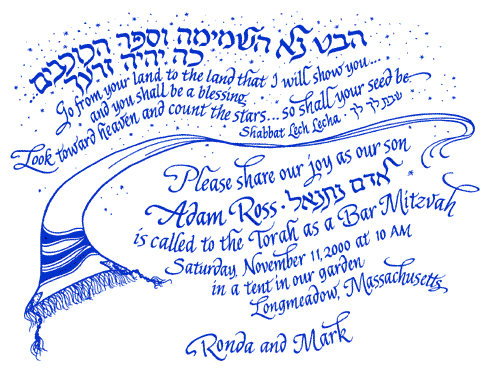 הבט נא השמימה וספר הכוכבים
...כה יהיה זרעך
Go from your land to the land that I will show you...
and you shall be a blessing
Look toward heaven and count the stars...so shall your seed be
Shabbat Lech Lecha · שבת לך לך
Please share our joy as our son
Adam Ross · אדם נתנאל
is called to the Torah as a Bar Mitzvah
Saturday, November 11, 2000 at 10 AM
in a tent in our garden
Longmeadow, Massachusetts
Ronda and Mark